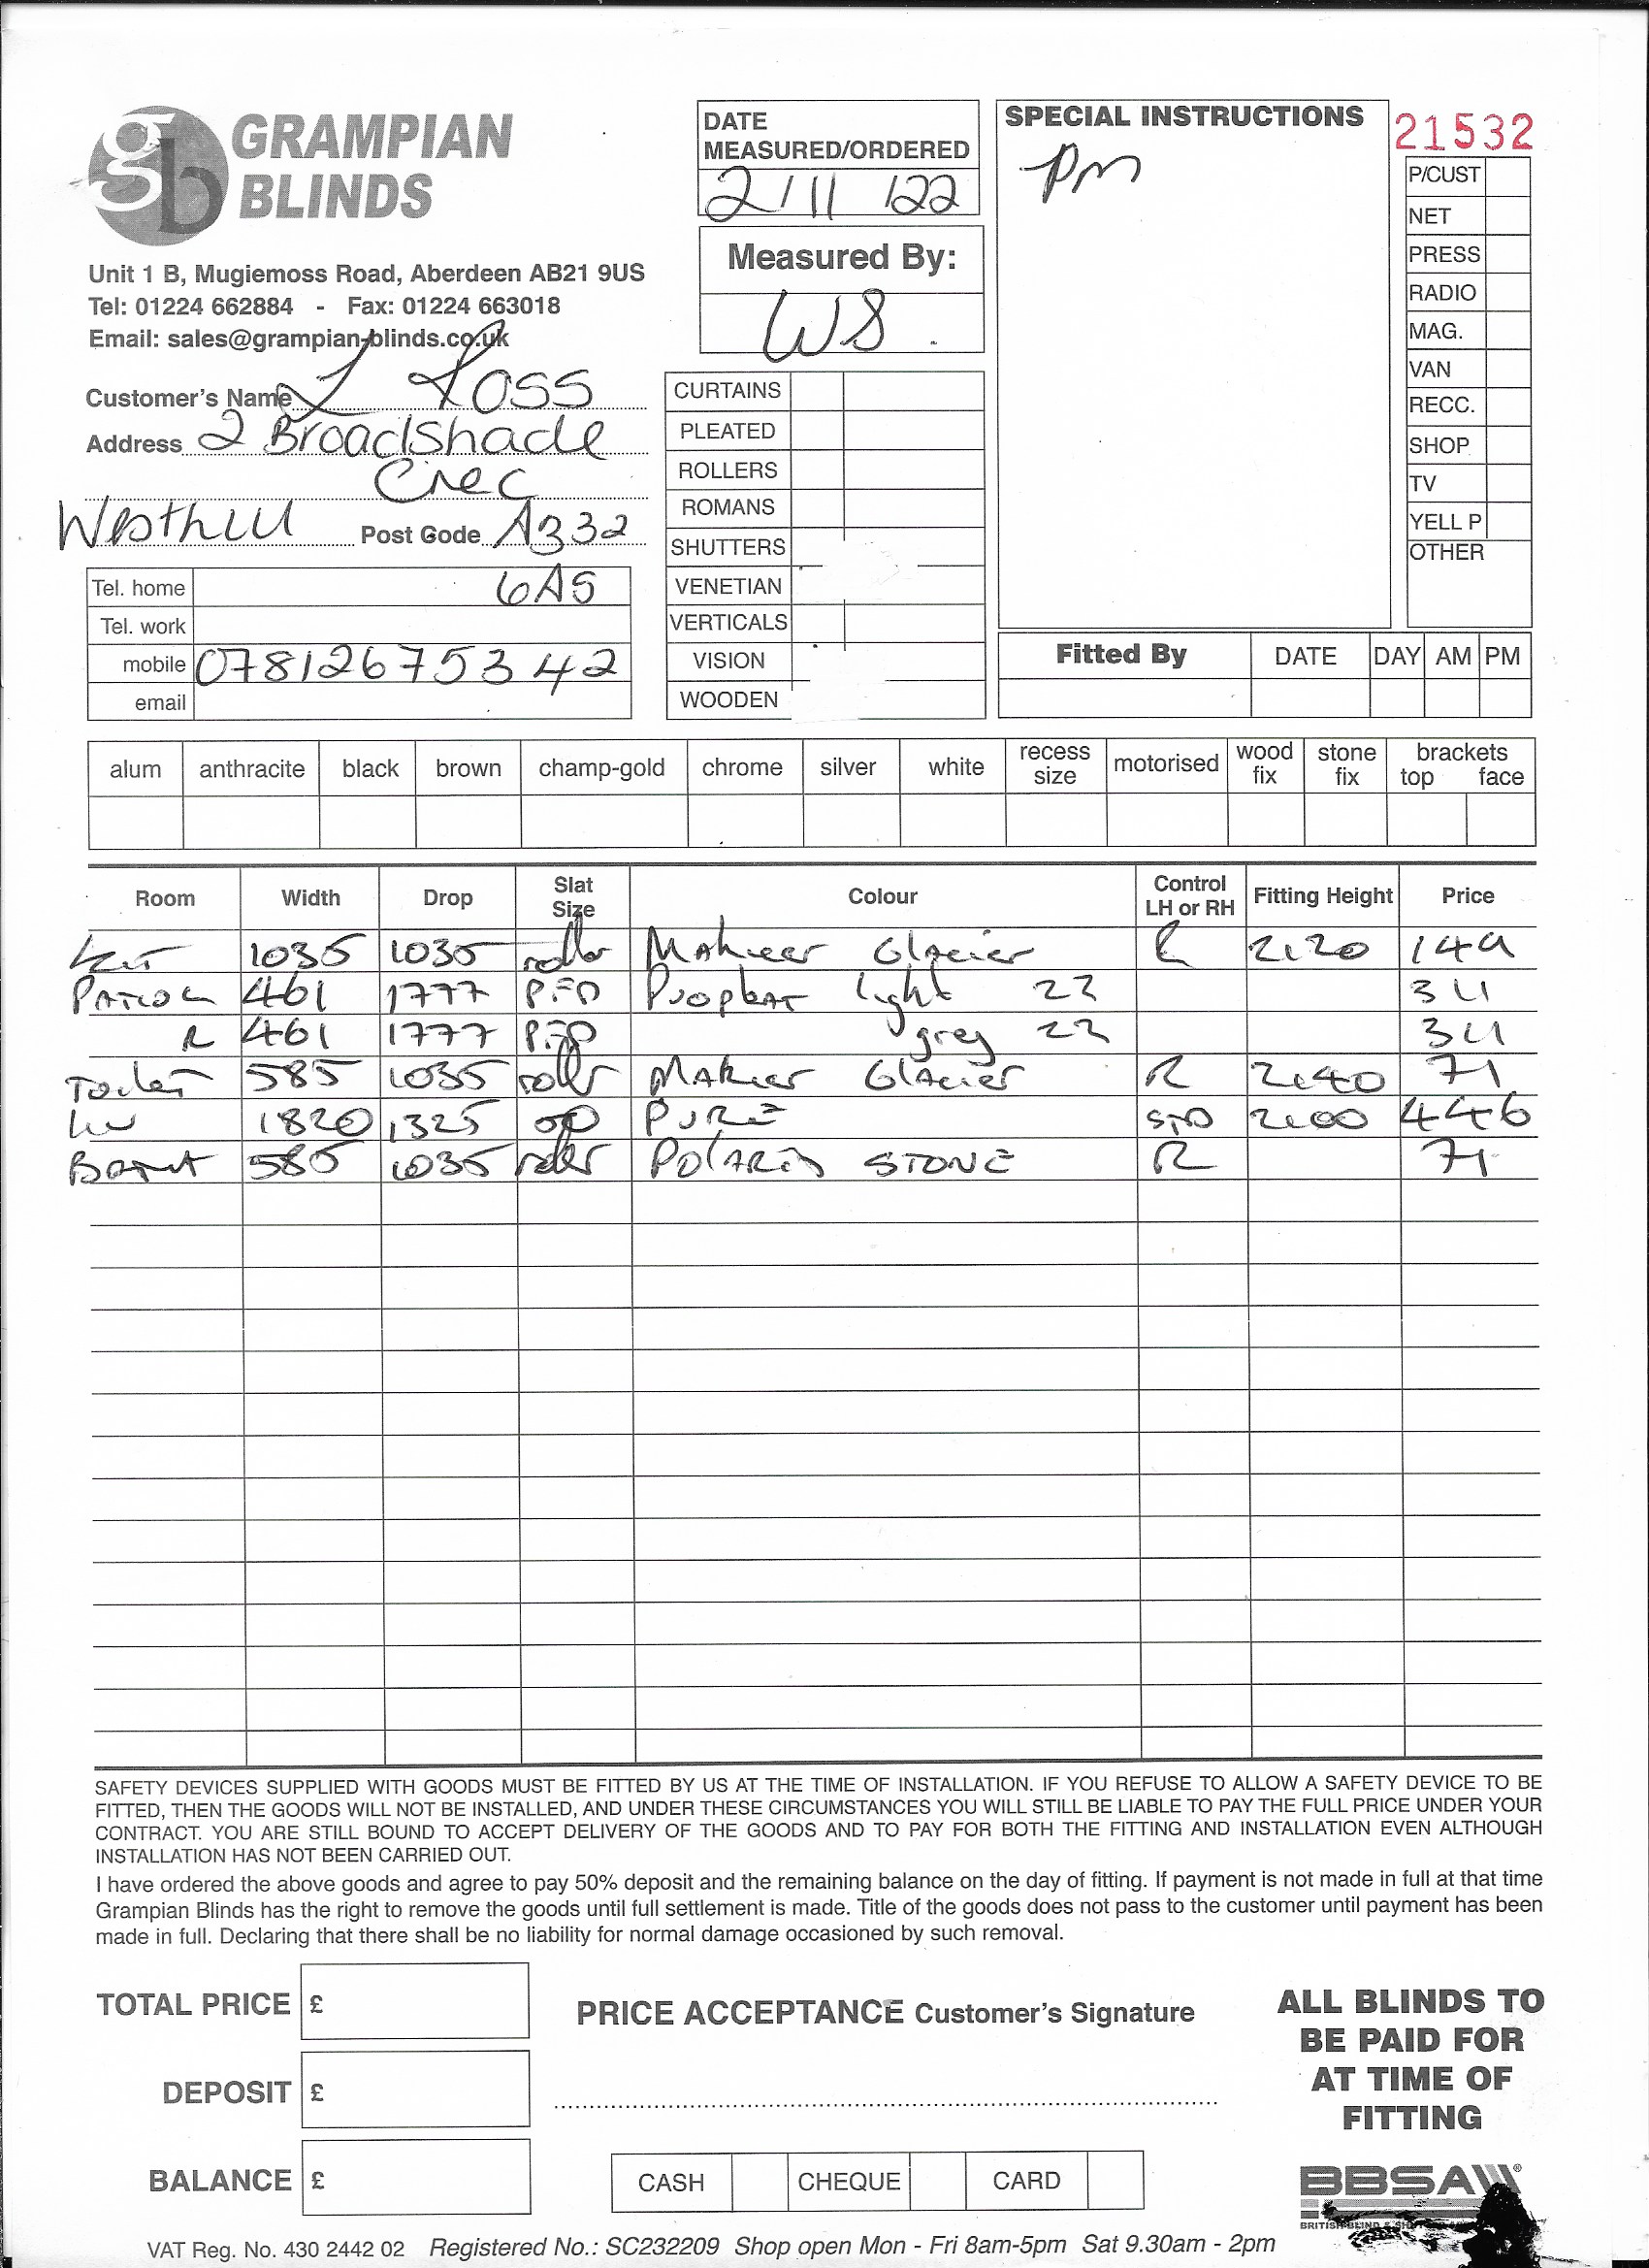 GRAMPIAN
BLINDS
Unit 1 B, Mugiemoss Road, Aberdeen AB21 9US
Tel: 01224 662884 - Fax: 01224 663018
Email: sales@grampian-blinds.co.uk
DATE
MEASURED/ORDERED
2/11/22
Measured By:
WS
SPECIAL INSTRUCTIONS
pm
21532
P/CUST
NET
PRESS
RADIO
MAG.
VAN
RECC.
SHOP
TV
YELL P
OTHER
Customer's Name Ross
Address 2 Broadshade
Cres
Westhill Post Code AB32
6AS
Tel. home
Tel. work
mobile 07812675342
email
CURTAINS
PLEATED
ROLLERS
ROMANS
SHUTTERS
VENETIAN
VERTICALS
VISION
WOODEN
Fitted By DATE DAY AM PM
alum anthracite black brown champ-gold chrome silver white recess size motorised wood fix stone fix brackets top face
Room Width Drop Slat Size Colour Control LH or RH Fitting Height Price
Kit 1035 1035 roller Glacier 2120 149
461 1777 light 22
R 461 1777 grey 22
Toilet 585 1035 roller Glacier R 2140 71
1820 1325 PURE STD 2100 446
585 1035 roller POLARIS STONE R 71
SAFETY DEVICES SUPPLIED WITH GOODS MUST BE FITTED BY US AT THE TIME OF INSTALLATION. IF YOU REFUSE TO ALLOW A SAFETY DEVICE TO BE
FITTED, THEN THE GOODS WILL NOT BE INSTALLED, AND UNDER THESE CIRCUMSTANCES YOU WILL STILL BE LIABLE TO PAY THE FULL PRICE UNDER YOUR
CONTRACT. YOU ARE STILL BOUND TO ACCEPT DELIVERY OF THE GOODS AND TO PAY FOR BOTH THE FITTING AND INSTALLATION EVEN ALTHOUGH
INSTALLATION HAS NOT BEEN CARRIED OUT.
I have ordered the above goods and agree to pay 50% deposit and the remaining balance on the day of fitting. If payment is not made in full at that time
Grampian Blinds has the right to remove the goods until full settlement is made. Title of the goods does not pass to the customer until payment has been
made in full. Declaring that there shall be no liability for normal damage occasioned by such removal.
TOTAL PRICE £
PRICE ACCEPTANCE Customer's Signature
DEPOSIT £
BALANCE £
CASH CHEQUE CARD
ALL BLINDS TO
BE PAID FOR
AT TIME OF
FITTING
BBSA
VAT Reg. No. 430 2442 02 Registered No.: SC232209 Shop open Mon - Fri 8am-5pm Sat 9.30am - 2pm